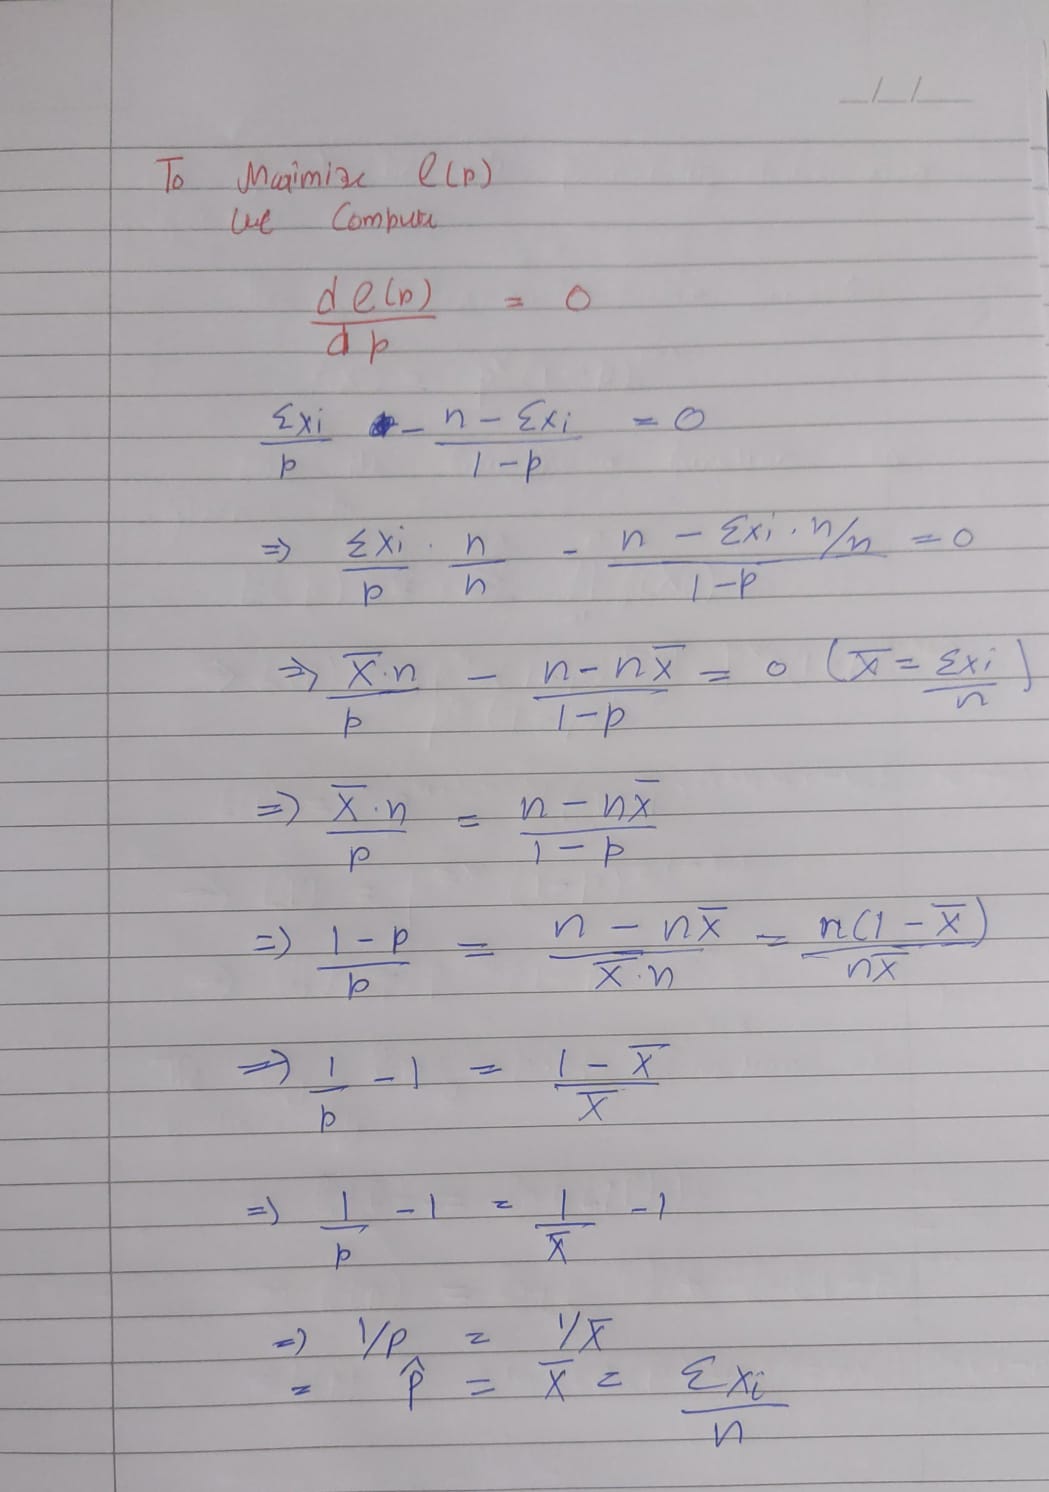 __/__/____
To Maximize ℓ(p)
we Compute
dℓ(p)/dp = 0
Σxi/p - (n - Σxi)/(1-p) = 0
⇒ Σxi/p · n/n - (n - Σxi · n/n)/(1-p) = 0
⇒ x̅·n/p - (n - nx̅)/(1-p) = 0 (x̅ = Σxi/n)
⇒ x̅·n/p = (n - nx̅)/(1-p)
⇒ (1-p)/p = (n - nx̅)/(x̅·n) = n(1 - x̅)/(nx̅)
⇒ 1/p - 1 = (1 - x̅)/x̅
⇒ 1/p - 1 = 1/x̅ - 1
⇒ 1/p = 1/x̅
= p̂ = x̅ = Σxi/n